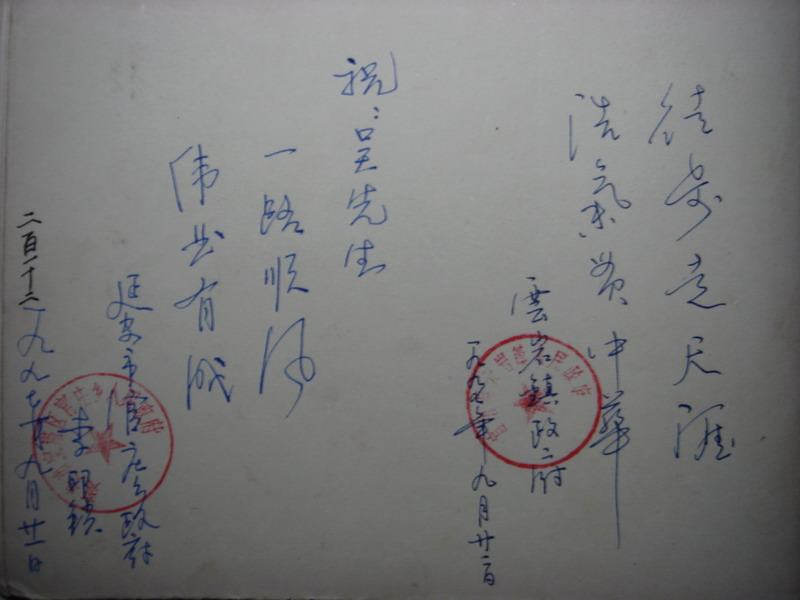 徒步走天涯
浩氣贯中華
雲岩鎮政府
一九九七年九月廿二日
祝:吴先生
一路顺风
伟业有成
延安市官庄乡政府
李
一九九七年九月廿一日
二百一十二